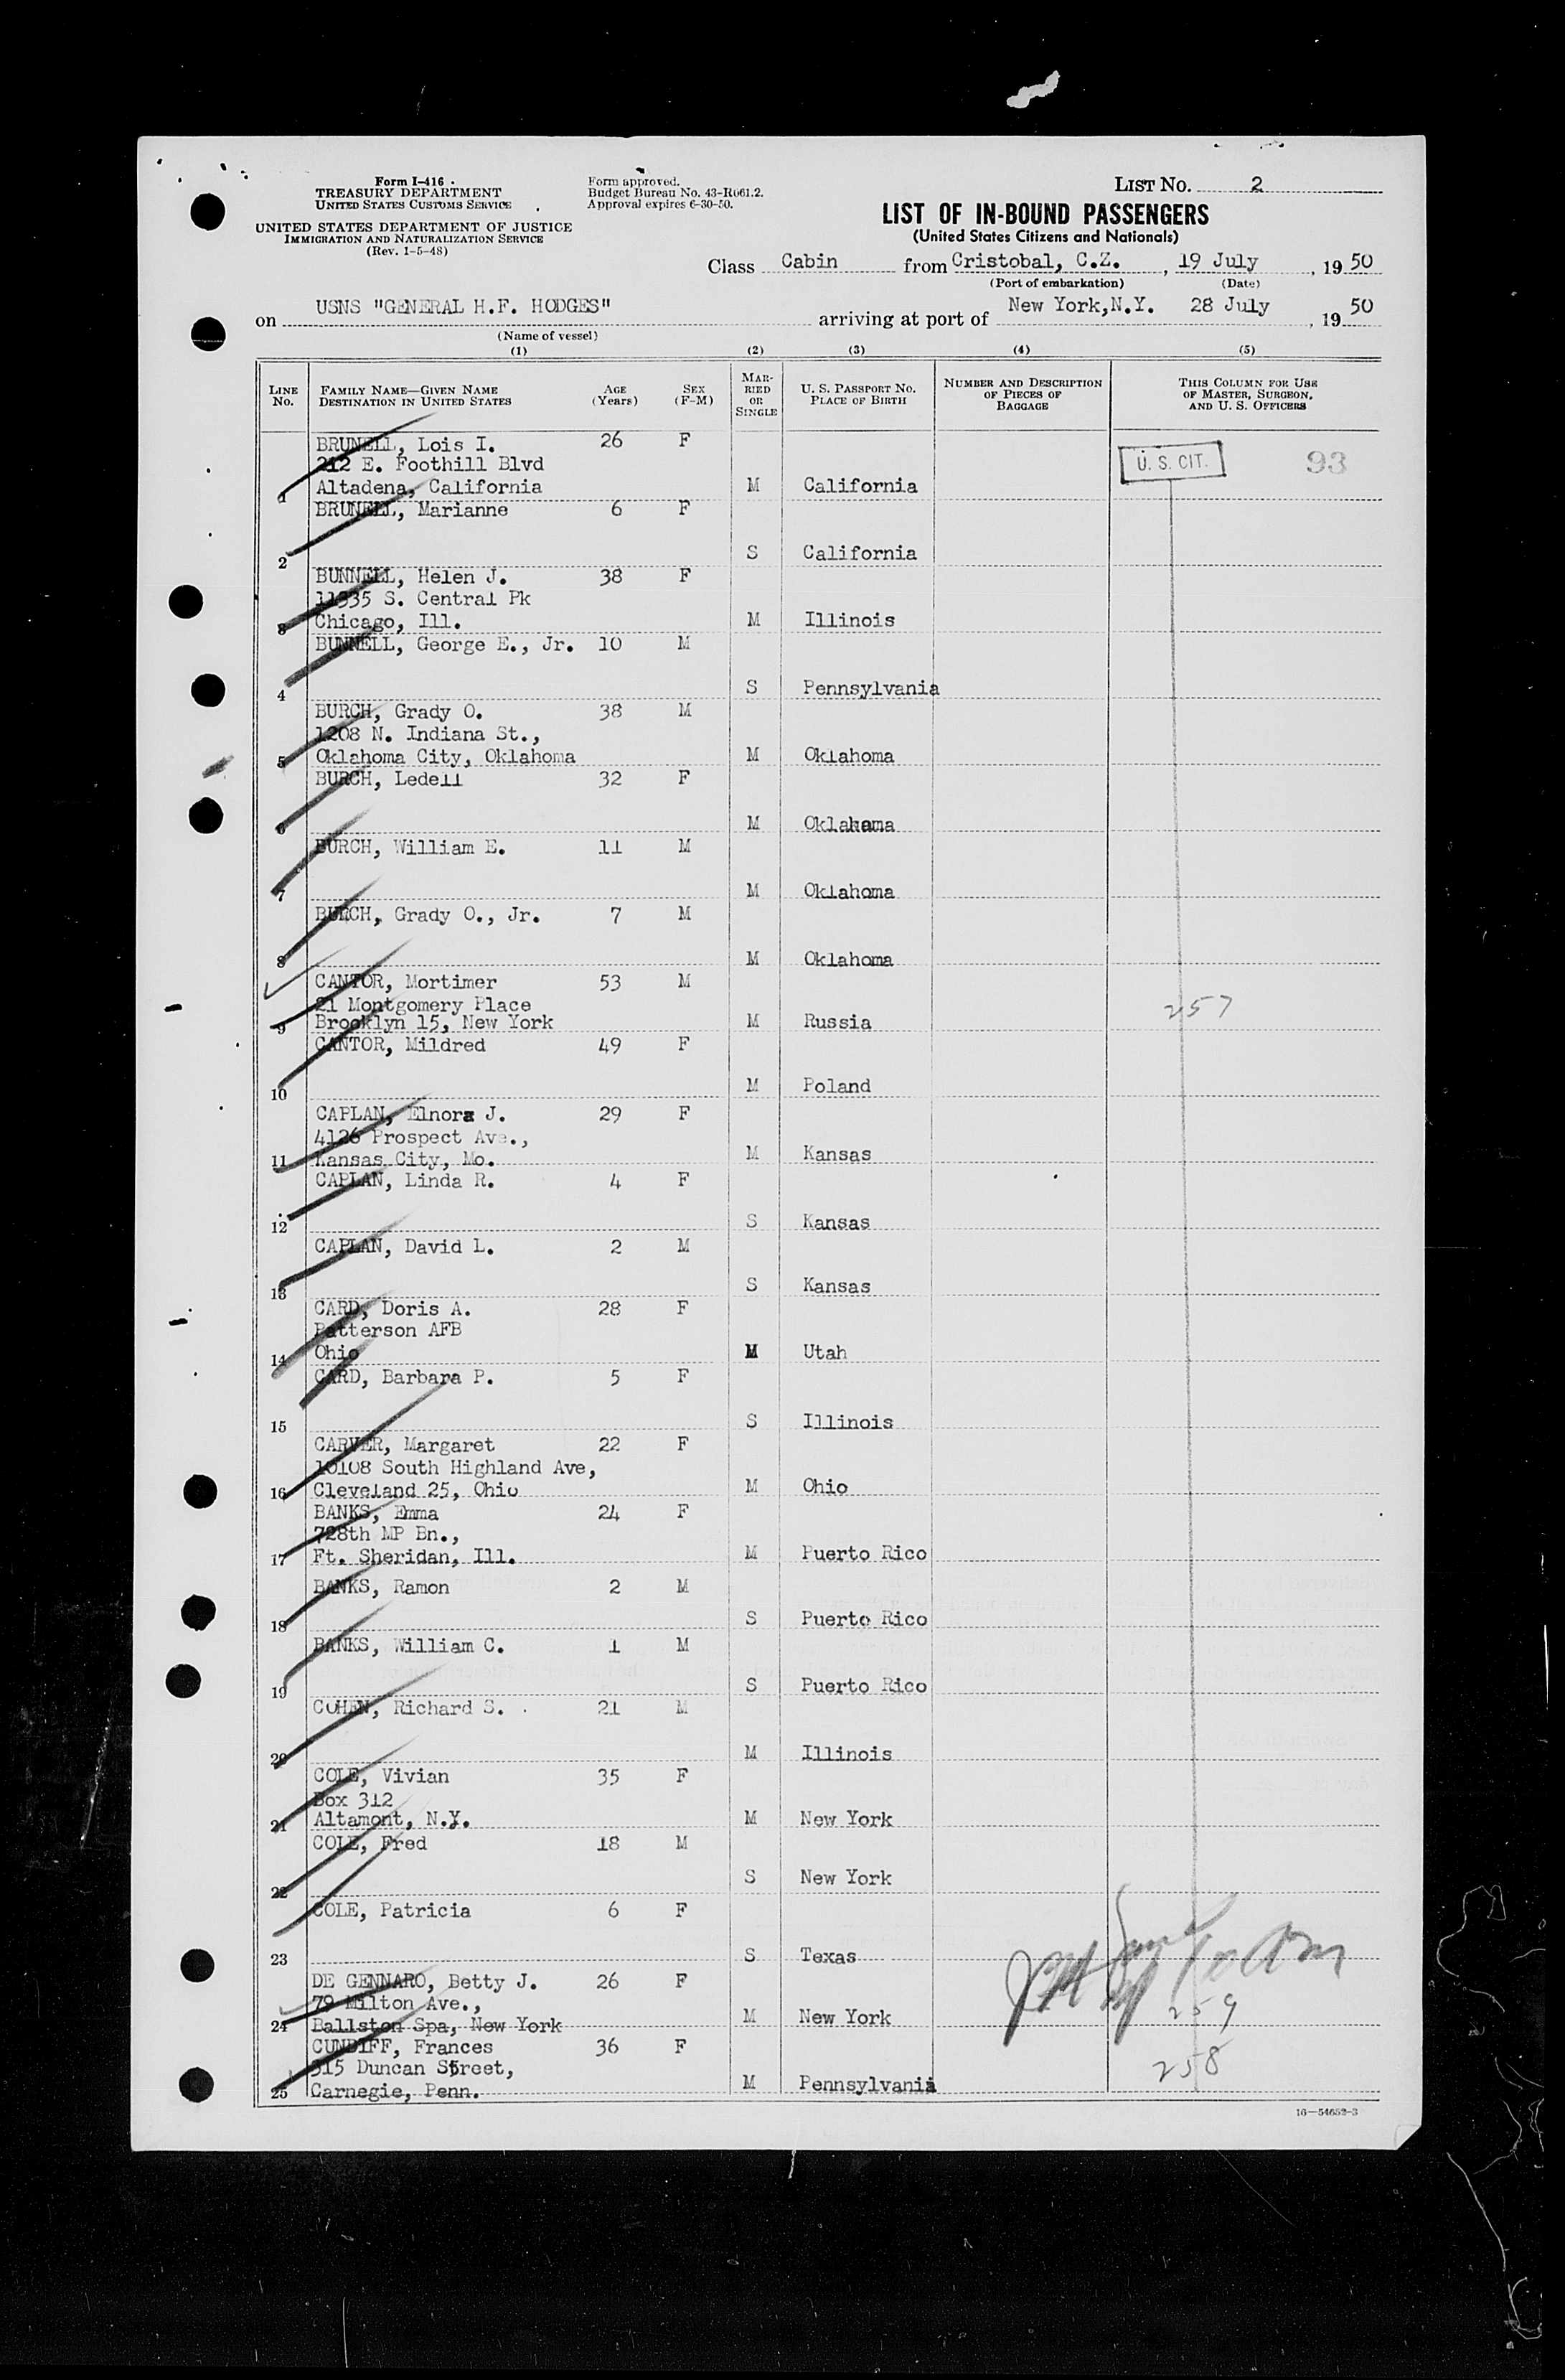 Form I-416
TREASURY DEPARTMENT
UNITED STATES CUSTOMS SERVICE
UNITED STATES DEPARTMENT OF JUSTICE
IMMIGRATION AND NATURALIZATION SERVICE
(Rev. 1-5-48)
Form approved.
Budget Bureau No. 43-R061.2.
Approval expires 6-30-50.
LIST No. 2
LIST OF IN-BOUND PASSENGERS
(United States Citizens and Nationals)
Class Cabin from Cristobal, C.Z., 19 July, 1950
(Port of embarkation) (Date)
on USNS "GENERAL H.F. HODGES" arriving at port of New York, N.Y. 28 July, 1950
(Name of vessel)
(1) (2) (3) (4) (5)
LINE No. FAMILY NAME—GIVEN NAME DESTINATION IN UNITED STATES AGE (Years) SEX (F-M) MARRIED OR SINGLE U. S. PASSPORT NO. PLACE OF BIRTH NUMBER AND DESCRIPTION OF PIECES OF BAGGAGE THIS COLUMN FOR USE OF MASTER, SURGEON, AND U. S. OFFICERS
BRUNELL, Lois I. 26 F U. S. CIT. 93
212 E. Foothill Blvd
1 Altadena, California M California
BRUNELL, Marianne 6 F
2 S California
BUNNELL, Helen J. 38 F
11335 S. Central Pk
3 Chicago, Ill. M Illinois
BUNNELL, George E., Jr. 10 M
4 S Pennsylvania
BURCH, Grady O. 38 M
1208 N. Indiana St.,
5 Oklahoma City, Oklahoma M Oklahoma
BURCH, Ledell 32 F
6 M Oklahoma
BURCH, William E. 11 M
7 M Oklahoma
BURCH, Grady O., Jr. 7 M
8 M Oklahoma
CANTOR, Mortimer 53 M
21 Montgomery Place 257
9 Brooklyn 15, New York M Russia
CANTOR, Mildred 49 F
10 M Poland
CAPLAN, Elnora J. 29 F
4126 Prospect Ave.,
11 Kansas City, Mo. M Kansas
CAPLAN, Linda R. 4 F
12 S Kansas
CAPLAN, David L. 2 M
13 S Kansas
CARD, Doris A. 28 F
Patterson AFB
14 Ohio M Utah
CARD, Barbara P. 5 F
15 S Illinois
CARVER, Margaret 22 F
10108 South Highland Ave,
16 Cleveland 25, Ohio M Ohio
BANKS, Emma 24 F
728th MP Bn.,
17 Ft. Sheridan, Ill. M Puerto Rico
BANKS, Ramon 2 M
18 S Puerto Rico
BANKS, William C. 1 M
19 S Puerto Rico
COHEN, Richard S. 21 M
20 M Illinois
COLE, Vivian 35 F
Box 312
21 Altamont, N.Y. M New York
COLE, Fred 18 M
22 S New York
COLE, Patricia 6 F
23 S Texas
DE GENNARO, Betty J. 26 F
79 Milton Ave., 259
24 Ballston Spa, New York M New York
CUNDIFF, Frances 36 F
315 Duncan Street, 258
25 Carnegie, Penn. M Pennsylvania
16—54652-3